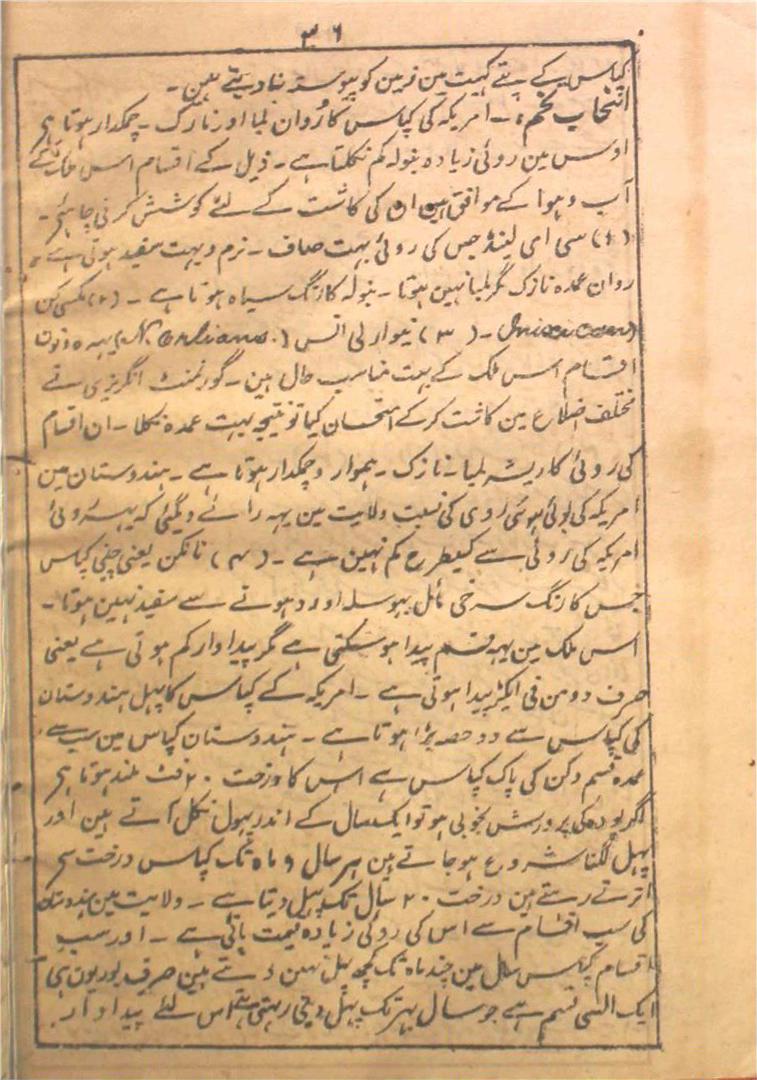 ۳۶
کپاس کے پتے کہیت مین زمین کو پیوستہ بنا دیتے ہین ۔
انتخاب تخم ۔ امریکہ کی کپاس کا رُوان لمبا اور نازک ۔ چمکدار ہوتا ہی
اوس مین روئی زیادہ بنولہ کم نکلتا ہے ۔ ذیل کے اقسام اس ملک کے
آب و ہوا کے موافق ہین ان کی کاشت کے لئے کوشش کرنی چاہئے ۔
(۱) سی ای لینڈ جس کی روئی بہت صاف ۔ نرم و بہت سفید ہوتی ہے ۔
روان عمدہ نازک مگر لمبا نہین ہوتا ۔ بنولہ کا رنگ سیاہ ہوتا ہے ۔ (۲) مکسی کن
(Mixican) ۔ (۳) نیوار لی انس (N. Orlians.) یہہ دونون
اقسام اس ملک کے بہت مناسب حال ہین ۔ گورنمنٹ انگریزی نے
مختلف اضلاع مین کاشت کر کے امتحان کیا تو نتیجہ بہت عمدہ نکلا ۔ ان اقسام
کی روئی کا ریشہ لمبا ۔ نازک ۔ ہموار و چمکدار ہوتا ہے ۔ ہندوستان مین
امریکہ کی بوئی ہوئی روی کی نسبت ولایت مین یہہ رائے دیگئی کہ یہہ روئی
امریکہ کی روئی سے کسیطرح کم نہین ہے ۔ (۴) نانکن یعنی چینی کپاس
جس کا رنگ سرخی مائل بہوسلہ اور دہونے سے سفید نہین ہوتا ۔
اس ملک مین یہہ قسم پیدا ہو سکتی ہے مگر پیداوار کم ہوتی ہے یعنی
صرف دو من فی ایکڑ پیدا ہوتی ہے ۔ امریکہ کے کپاس کا پہل ہندوستان
کی کپاس سے دو حصہ بڑا ہوتا ہے ۔ ہندوستان کپاس مین سب سے
عمدہ قسم دکن کی پاک کپاس ہے اس کا درخت ۲۰ فٹ بلند ہوتا ہی
اگر پودہ کی پرورش بخوبی ہو تو ایکسال کے اندر پہول نکل آتے ہین اور
پہل لگنا شروع ہو جاتے ہین ہر سال ۶ ماہ تک کپاس درخت سی
اترتے رہتے ہین درخت ۲۰ سال تک پہل دیتا ہے ۔ ولایت مین ہندوستان
کی سب اقسام سے اس کی روئی زیادہ قیمت پاتی ہے ۔ اور سب
اقسام کپاس سال مین چند ماہ تک کچھ پہل نہین دیتے ہین صرف بوریون ہی
ایک ایسی قسم ہے جو سال بہر تک پہل دیتی رہتی ہے اس لئے پیداوار